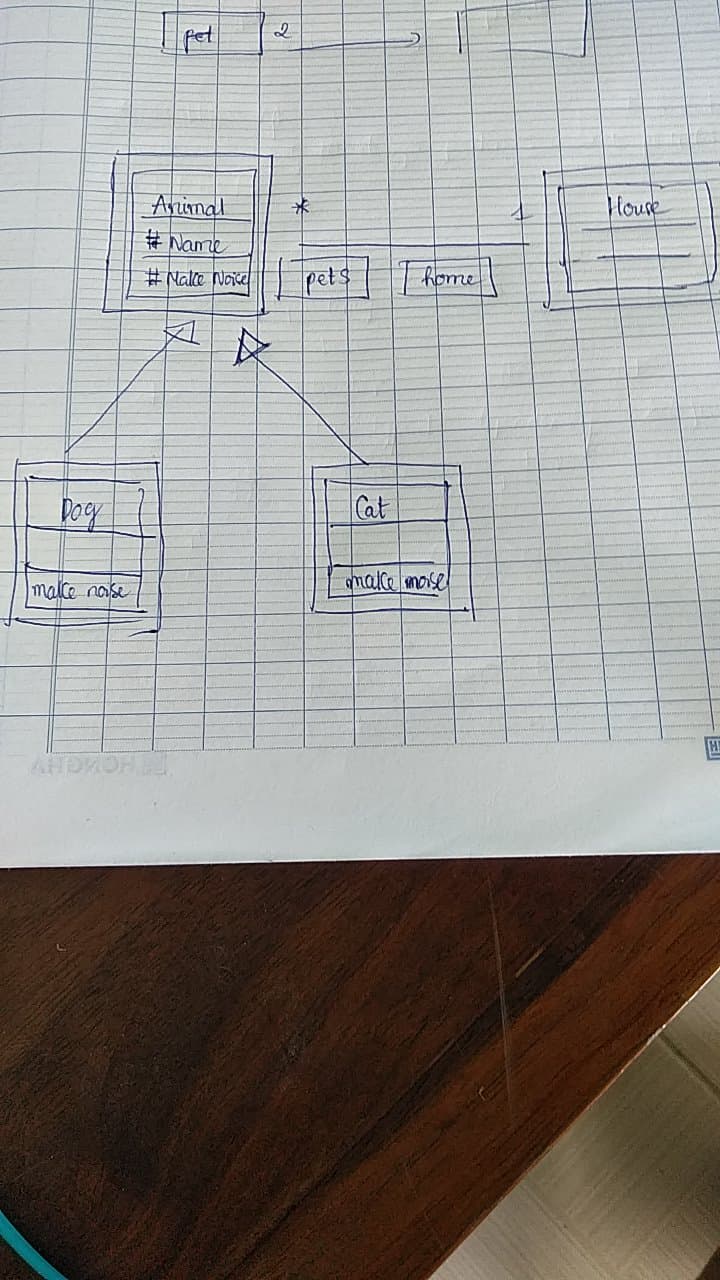 pet 2
Animal
# Name
# Make Noise
* 1
pets
home
House
Dog
make noise
Cat
make moise
HONG HA